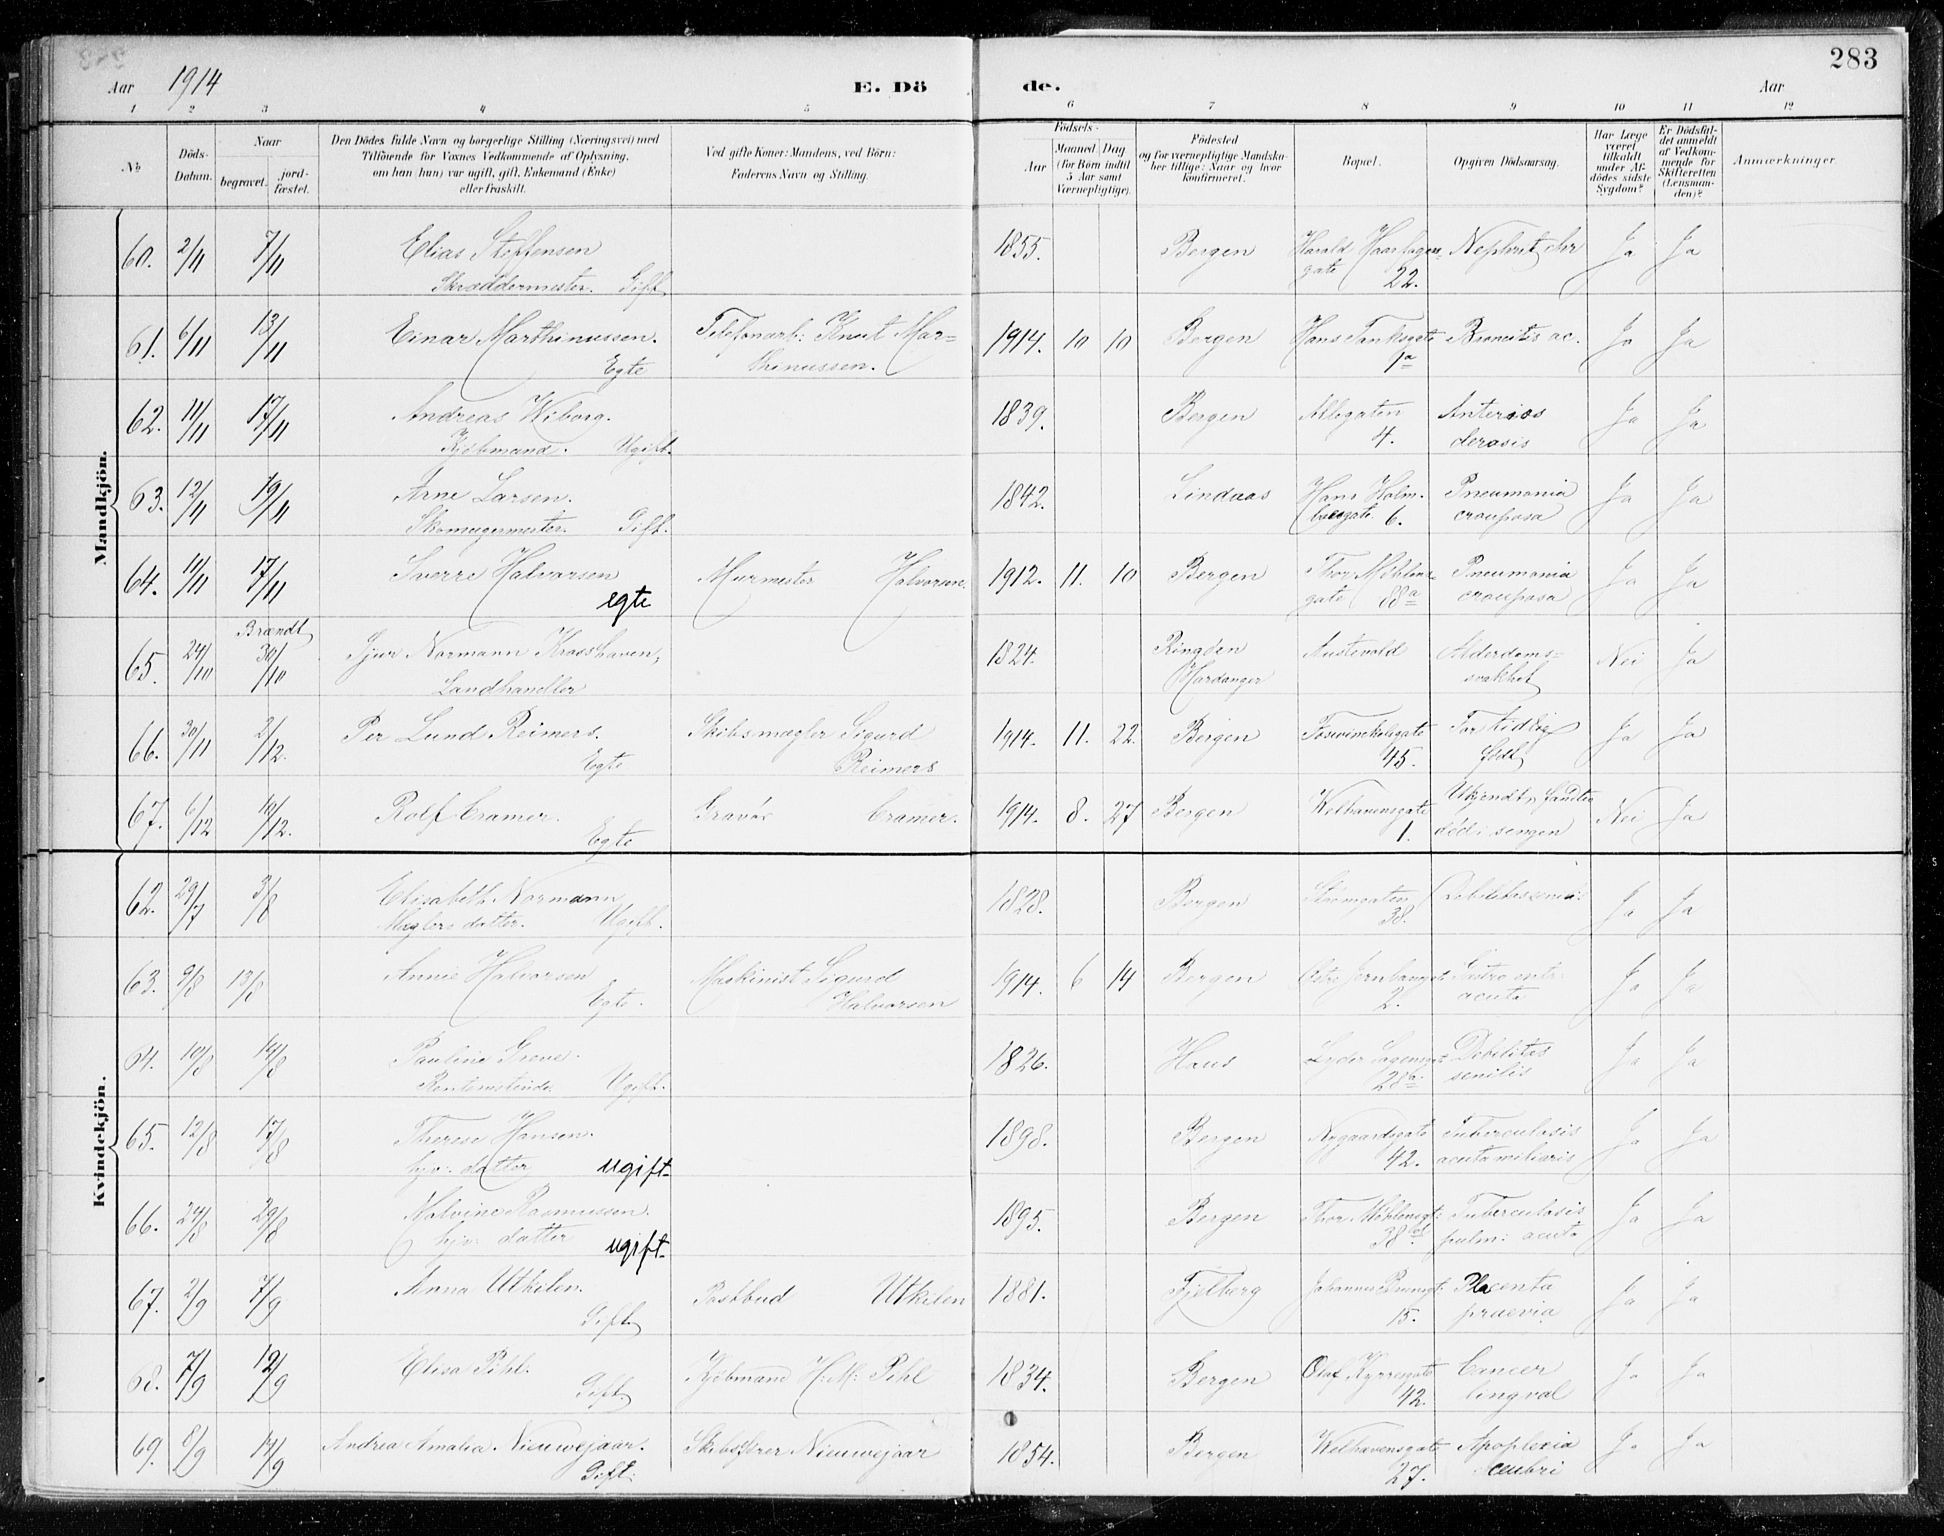 283
Aar 1914 E. Dö de. Aar
1 2 3 4 5 6 7 8 9 10 11 12
No. Döds-Datum. Naar begravet. jord-fæstet. Den Dödes fulde Navn og borgerlige Stilling (Næringsvei) med Tilföiende for Voxnes Vedkommende af Oplysning, om han (hun) var ugift, gift, Enkemand (Enke) eller fraskilt. Ved gifte Koner: Mandens, ved Börn: Faderens Navn og Stilling. Födsels- Aar Maaned Dag (for Börn indtil 5 Aar samt Værnepligtige). Födested og for værnepligtige Mandskaber tillige: Naar og hvor konfirmeret. Bopæl. Opgiven Dödsaarsag. Har Læge været tilkaldt under Afdödes sidste Sygdom? Er Dödsfaldet anmeldt af Vedkommende for Skifteretten (Lensmanden)? Anmærkninger.
Mandkjön.
60. 2/11 7/11 Elias Steffensen 1855. Bergen Harald Haarfagers- Nephrit chr Ja Ja
Skræddermester. Gift gate 22.
61. 6/11 13/11 Einar Marthinussen. Telefonarb: Knut Mar= 1914. 10 10 Bergen Hans Tanksgate Broncites ac. Ja Ja
Egte thinussen. 1a
62. 11/11 17/11 Andreas Wiborg. 1839. Bergen Allegaten Anterios Ja Ja
Kjöbmand. Ugift. 4. derosis
63. 12/11 19/11 Arne Larsen. 1842. Lindaas Hans Holm- Pneumonia Ja Ja
Skomagermester. Gift. boesgate 6. crouposa
64. 11/11 17/11 Sverre Halvorsen Murmester Halvorsen. 1912. 11. 10 Bergen Thor Möhlens- Pneumonia Ja Ja
egte gate 88a crouposa
Brændt
65. 24/10 30/10 Sjur Normann Krosshaven, 1824. Ringöen Austevold Alderdoms= Nei Ja
Landhandler Hardanger svakhet
66. 30/11 2/12. Per Lund Reimers. Skibsmægler Sigurd 1914. 11. 22. Bergen Fosswinckelsgate For tidlig Ja Ja
Egte Reimers 45. födt
67. 6/12 10/12. Rolf Cramer. Gravör Cramer. 1914. 8. 27 Bergen Welhavensgate Ukjendt, fandtes Nei Ja
Egte 1. död i sengen
Kvindekjön.
62. 29/7 3/8 Elisabeth Normann 1828. Bergen Strömgaten Debilitas senil: Ja Ja
Mæglers datter. Ugift. 38.
63. 9/8 13/8 Annie Halvorsen Maskinist Sigurd 1914. 6 14 Bergen Östre Jernbanegt Gastro ente: Ja Ja
Egte. Halvorsen 2. acuta
64. 10/8 14/8 Pauline Greve. 1826. Haus Lyder Sagensgt Debilitas Ja Ja
Rentenistinde. Ugift. 28b. senilis
65. 12/8 17/8 Therese Hansen. 1898. Bergen Nygaardsgate Tuberculosis Ja Ja
hjv: datter ugift. 42. acuta miliaris
66. 24/8 29/8 Malvine Rasmussen. 1895. Bergen Thor Möhlensgt: Tuberculosis Ja Ja
hjv: datter ugift. 38 pulm: acuta
67. 2/9 7/9 Anna Utkilen. Postbud Utkilen 1881. Fjelberg Johannes Brunsgt. Placenta Ja Ja
Gift 15. praevia
68. 7/9 12/9 Elisa Pihl. Kjöbmand H: M: Pihl 1834. Bergen Olaf Kyrresgate Cancer Ja Ja
Gift 42. lingval
69. 8/9 14/9 Andrea Amalia Nieuwejaar. Skibsförer Nieuwejaar 1854. Bergen Welhavensgate Apoplexia Ja Ja
Gift. 27.